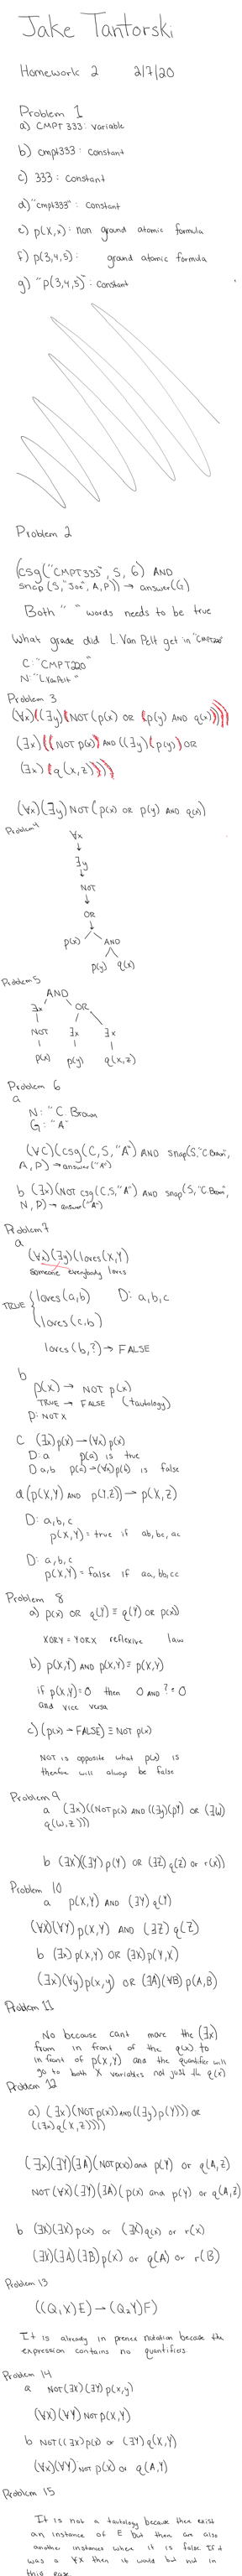 Jake Tantorski
Homework 2 2/7/20
Problem 1
a) CMPT 333: variable
b) cmpt333: constant
c) 333: constant
d) "cmpt333": constant
e) p(X,x): non ground atomic formula
f) p(3,4,5): ground atomic formula
g) "p(3,4,5)": constant
Problem 2
(csg("CMPT333", S, G) AND
snap(S,"Joe", A,P)) → answer(G)
Both " " words needs to be true
What grade did L.Van Pelt get in "CMPT220"
C: "CMPT220"
N: "L.VanPelt"
Problem 3
(∀x)((∃y)(NOT(p(x) OR (p(y) AND q(x)))))
(∃x)((NOT p(x)) AND ((∃y)(p(y)) OR
(∃x)(q(x,z))))
(∀x)(∃y) NOT(p(x) OR p(y) AND q(x))
Problem 4
∀x
↓
∃y
↓
NOT
↓
OR
p(x) AND
p(y) q(x)
Problem 5
AND
∃x OR
NOT ∃x ∃x
p(x) p(y) q(x,z)
Problem 6
a
N: "C. Brown
G: "A"
(∀C)(csg(C,S,"A") AND snap(S,"C.Brown",
A, P) → answer("A")
b (∃x)(NOT csg(C,S,"A") AND snap(S,"C.Brown",
N, P) → answer("A")
Problem 7
a
(∀x)(∃y)(loves(X,Y)
someone everybody loves
TRUE { loves(a,b) D: a,b,c
loves(c,b)
loves(b,?) → FALSE
b
p(x) → NOT p(x)
TRUE → FALSE (tautology)
p: NOT X
C (∃x)p(x) → (∀x)p(x)
D: a p(a) is true
D a,b p(a) → (∀x)p(b) is false
d (p(X,Y) AND p(Y,Z)) → p(X,Z)
D: a,b,c
p(X,Y) = true if ab, bc, ac
D: a,b,c
p(X,Y) = false if aa, bb, cc
Problem 8
a) p(x) OR q(Y) ≡ q(Y) OR p(x))
XORY = YORX reflexive law
b) p(X,Y) AND p(X,Y) ≡ p(X,Y)
if p(X,Y)=0 then 0 AND ? = 0
and vice versa
c) (p(x) → FALSE) ≡ NOT p(x)
NOT is opposite what p(x) is
therfore will always be false
Problem 9
a (∃x)((NOT p(x) AND ((∃y)(p(Y) OR (∃W)
q(W,Z)))
b (∃X)(∃Y) p(Y) OR (∃Z) q(Z) or r(X))
Problem 10
a p(X,Y) AND (∃Y) q(Y)
(∀X)(∀Y) p(X,Y) AND (∃Z) q(Z)
b (∃x) p(X,Y) OR (∃X) p(Y,X)
(∃x)(∀y) p(x,y) OR (∃A)(∀B) p(A,B)
Problem 11
No because cant move the (∃x)
from in front of the q(x) to
in front of p(X,Y) and the quantifer will
go to both X variables not just the q(x)
Problem 12
a) (∃x)(NOT p(x)) AND ((∃y) p(Y))) OR
((∃x) q(X,Z))))
(∃x)(∃Y)(∃A)(NOT p(x)) and p(Y) or q(A,Z)
NOT (∀X)(∃Y)(∃A)(p(x) and p(Y) or q(A,Z)
b (∃X)(∃X) p(x) or (∃X) q(x) or r(X)
(∃X)(∃A)(∃B) p(x) or q(A) or r(B)
Problem 13
((Q₁X)E) → (Q₂Y)F)
It is already in prenex notation because the
expression contains no quantifiers
Problem 14
a NOT(∃X)(∃Y) p(x,y)
(∀X)(∀Y) NOT p(X,Y)
b NOT((∃X)p(x) or (∃Y) q(X,Y)
(∀X)(∀Y) NOT p(x) or q(A,Y)
Problem 15
It is not a tautology because there exist
an instance of E but there are also
another instances where it is false. If it
was a ∀X then it would but not in
this case.